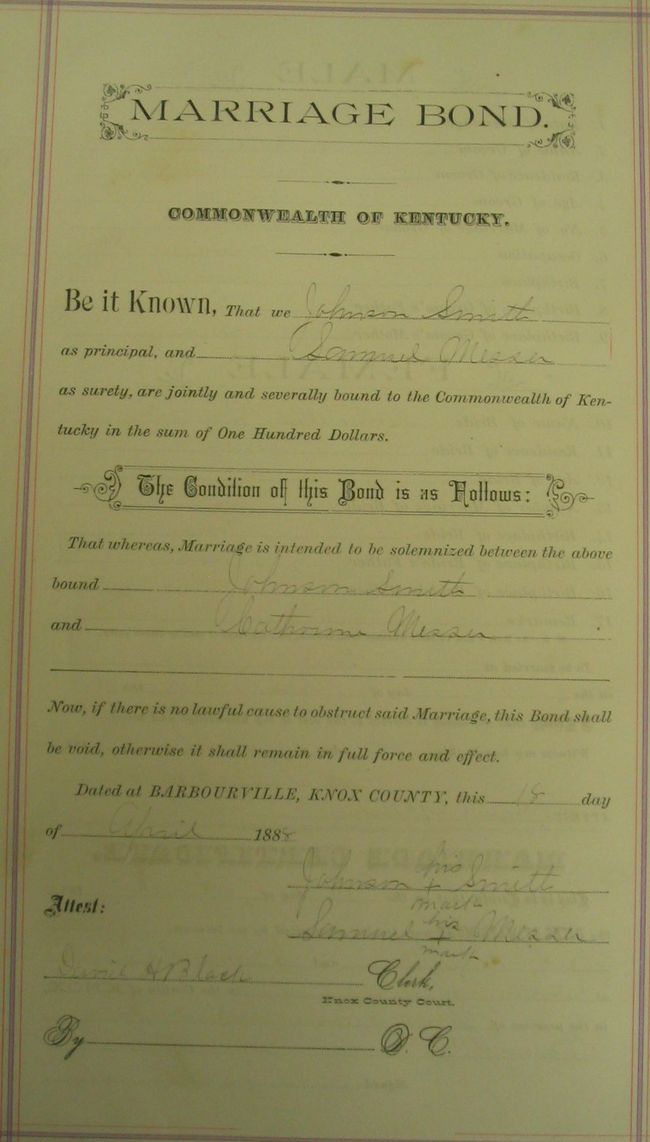 MARRIAGE BOND.
COMMONWEALTH OF KENTUCKY.
Be it Known, That we Johnson Smith
as principal, and Samuel Messer
as surety, are jointly and severally bound to the Commonwealth of Ken-
tucky in the sum of One Hundred Dollars.
The Condition of this Bond is as Follows:
That whereas, Marriage is intended to be solemnized between the above
bound Johnson Smith
and Catherine Messer
Now, if there is no lawful cause to obstruct said Marriage, this Bond shall
be void, otherwise it shall remain in full force and effect.
Dated at BARBOURVILLE, KNOX COUNTY, this 18 day
of April 1888
his
Johnson + Smith
mark
Attest:
his
Samuel + Messer
mark
H Black Clerk,
Knox County Court.
By D. C.